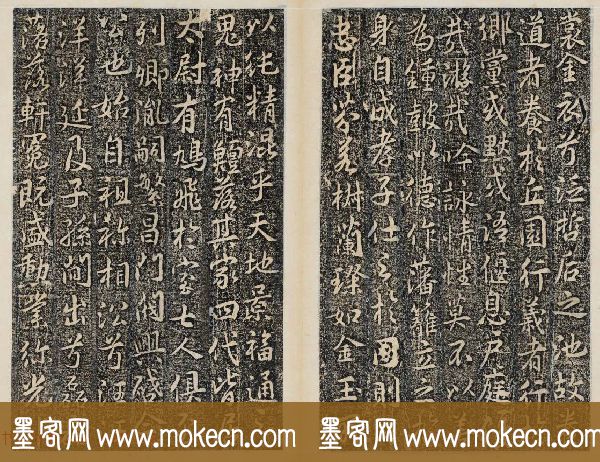 裳金衣兮泛哲后之池故
道者養於丘園行義者行
鄉黨或默或語偃息户庭
哉游哉吟詠情性莫不以
為鍾鼓以德作藩籬立之
身自成孝子仕之於國則
忠臣芬若樹蘭燦如金玉
以純精混乎天地景福通
鬼神有鱣落其家四代皆
太尉有鳩飛於家七人俱
列卿胤嗣繁昌門閥興
公也始自祖祢相
洋洋延及子孫閒出
落落軒冕既盛勳業彌光
墨客网 www.mokecn.com 墨客网 www.mokecn.com